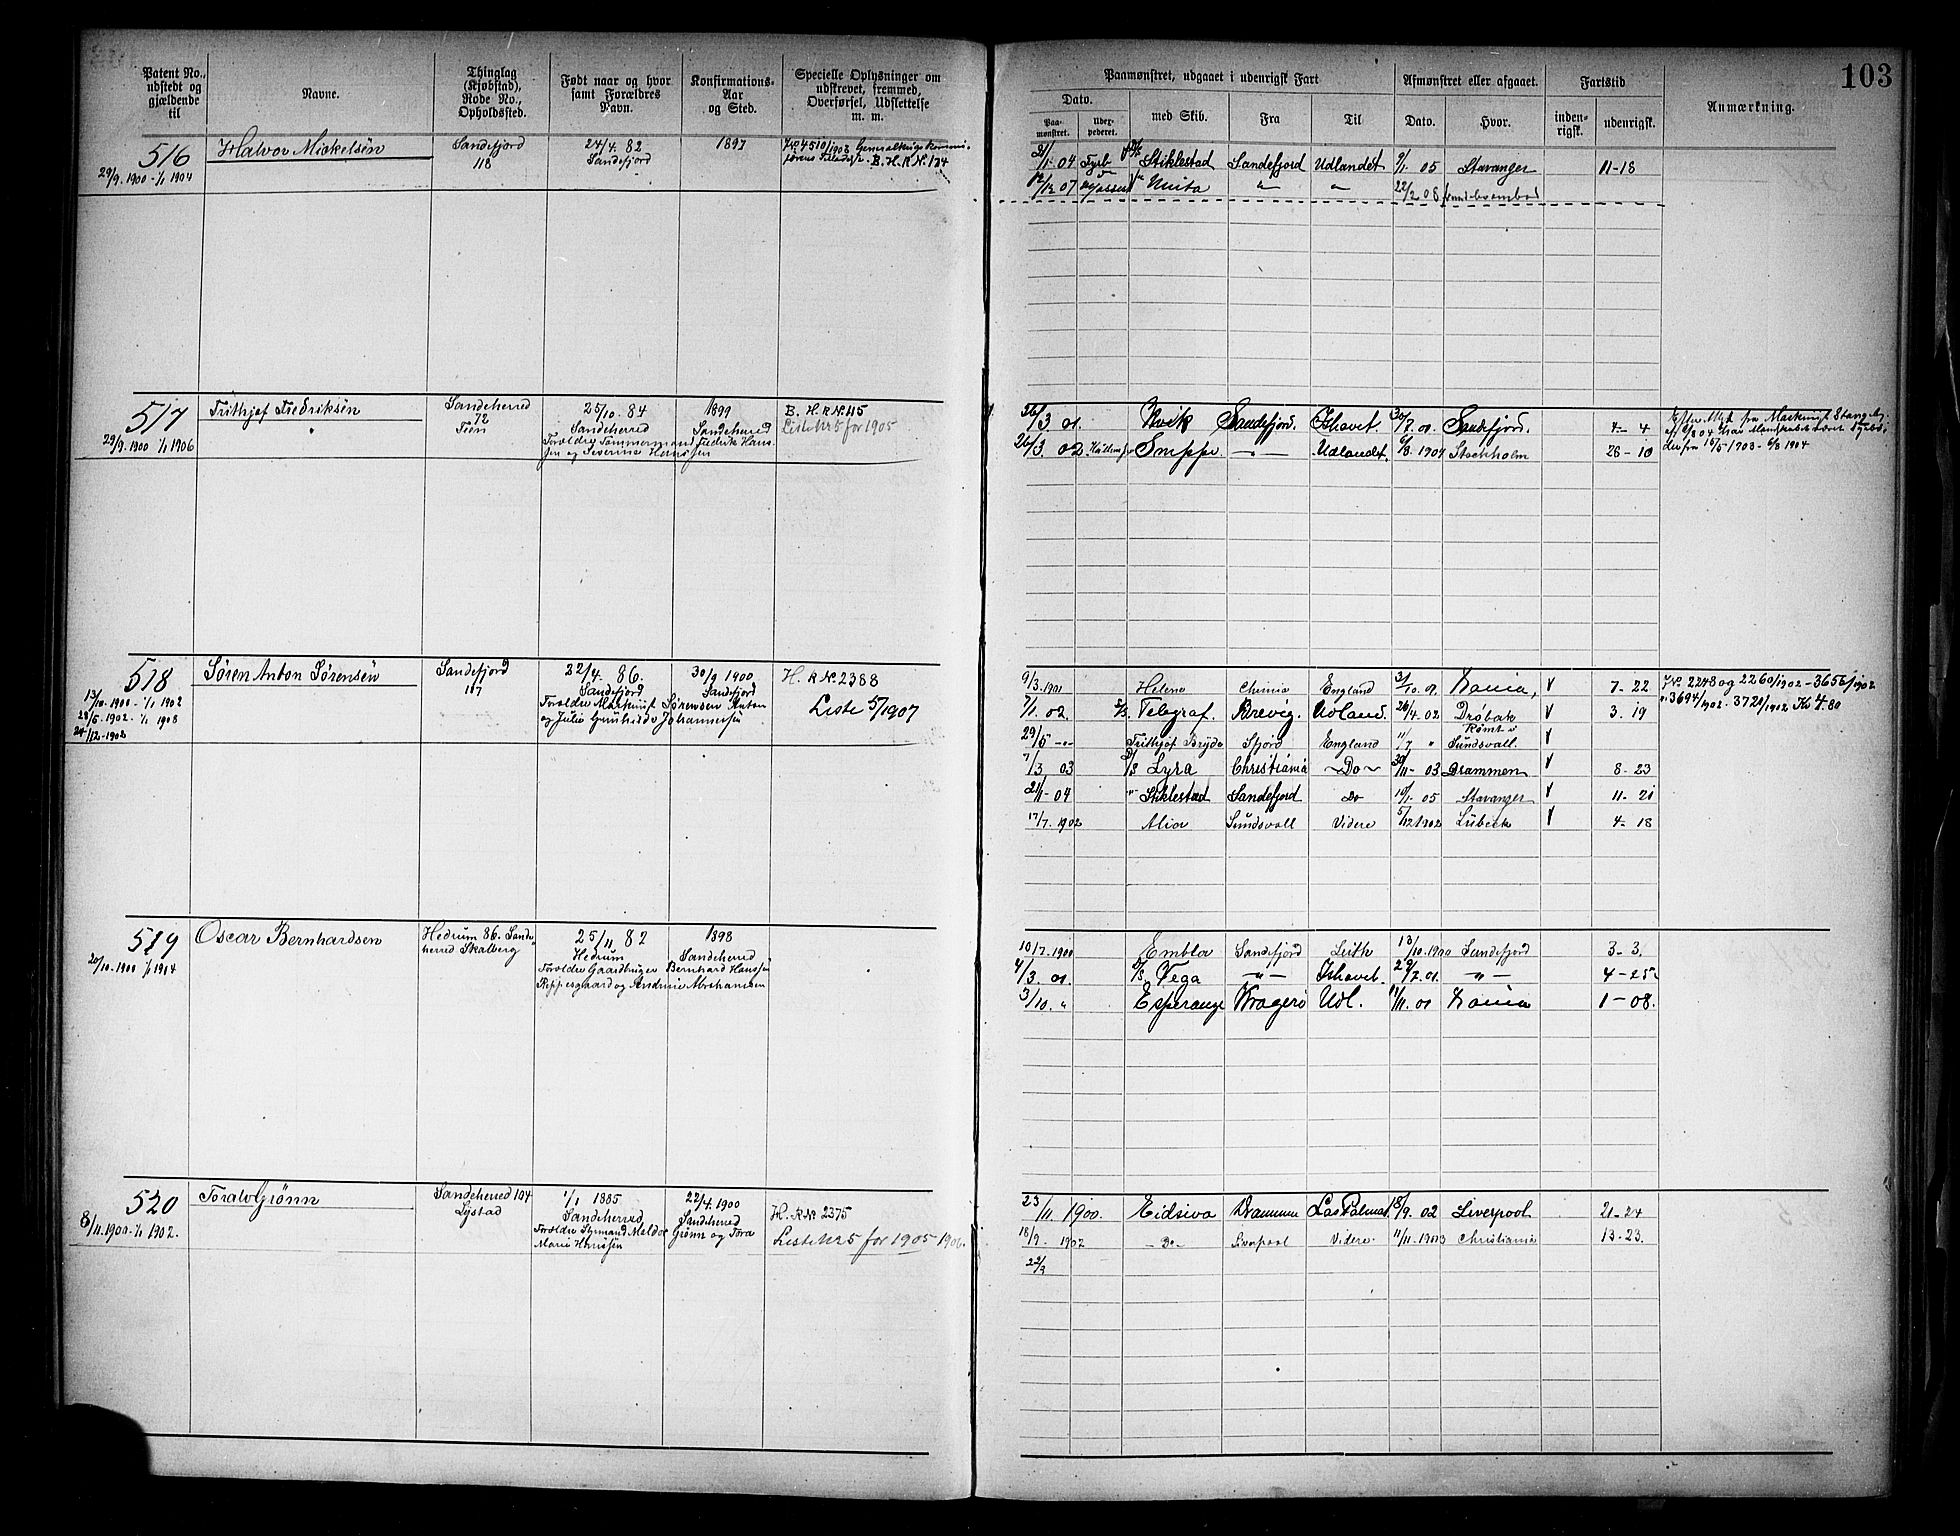 103
Patent No., udstedt og gjældende til
Navne.
Thinglag (Kjøbstad), Rode No., Opholdssted.
Født naar og hvor samt Forældres Navn.
Konfirmations-Aar og Sted.
Specielle Oplysninger om udskrevet, fremmed, Overførsel, Udslettelse m. m.
Paamønstret, udgaaet i udenrigsk Fart
Afmønstret eller afgaaet.
Fartstid
Anmærkning.
Dato.
Paamønstret.
Udexpederet.
med Skib.
Fra
Til
Dato.
Hvor.
indenrigsk.
udenrigsk.
516
29/9. 1900 - 1/1 1904
Halvor Mickelsen
Sandefjord
118
24/4. 82
Sandefjord
1897
B. H. R N. 134
2/1- 04 Fyrb Stiklestad Sandefjord Udlandet 9/1. 05 Stavanger 11-18
12/12 07 Unita " " 22/2 08
517
29/9. 1900 1/1 1906
Frithjof Fredriksen
Sandeherred
72
25/10. 84
Sandeherred
Forældre Tømmermand Fredrik Hansen og Severine Hansen
1899
Sandeherred
B. H. R N. 115
Liste Nr 5 for 1905
26/3 01. Kvik Sandefjord. Ishavet. 30/7. 01. Sandefjord. 4-4
26/3. 02 Snippe -"- Udlandet. 6/8. 1904 Stockholm 26-10
518
13/10. 1900 - 1/1 1902
28/5. 1902. - 1/1 1908
24/12-1902
Søren Anton Sørensen
Sandefjord
117
22/4. 86.
Sandefjord
30/9 1900
Sandefjord
H. R N. 2388
Liste 5/1907
9/3. 1901 Helene England 3/10. 01. 7-22
7/1. 02. Telegraf. Brevig. Udland. 26/4. 02 Drøbak 3. 19
29/5 -"- Frithjof Bryde Sfjord England 11/7 " Rømt i Sundsvall.
7/3. 03 Lyra Christiania -Do- 30/11- 03 Drammen 8-23
2/1- 04 " Stiklestad Sandefjord Do 10/1- 05 Stavanger 11-21
17/7. 1902 Alia Sundsvall Videre 5/12 1902 Lübeck 4-18
J.N. 2248 og 2260/1902 - 3656/1902
3694/1902. 3720/1902 Kr 4.80
519
20/10. 1900 1/1 1904
Oscar Bernhardsen
Hedrum 86. Sandeherred Skalberg
25/11 82
Hedrum
1898
Sandeherred
10/7. 1900 Embla Sandefjord Leith 13/10. 1900 Sandefjord 3-3.
4/3. 01. Vega -"- Ishavet. 29/7. 01. -"- 4-25
3/10. " Esperange Kragerø Udl. 11/11. 01 1-08.
520
8/11. 1900- 1/1 1902.
Toralv Grønn
Sandeherred 104
Lystad
1/1 1885
Sandeherred,
22/4. 1900
Sandeherred
H. R N. 2375
Liste Nr 5 for 1905 1906.
23/11 1900. Eidsiva Drammen Las Palmas 18/9. 02 Liverpool 21-24
18/9- 1902 -Do- Liverpool Videre 11/11. 1903 Christiania 13-23.
22/3